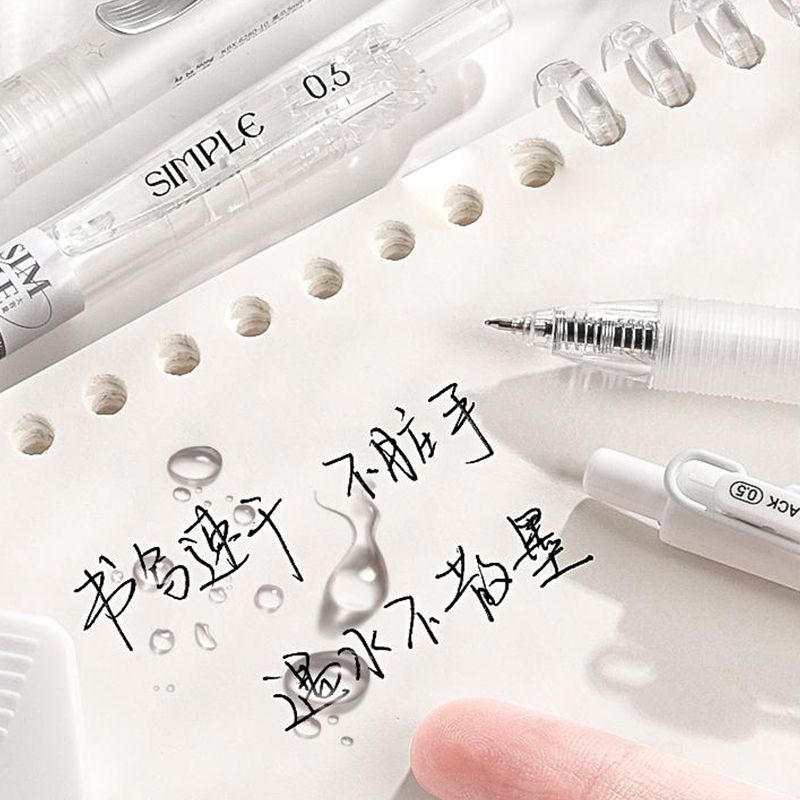 SIMPLE 0.5
SIM
0.5
不脏手
书写速干
遇水不散墨